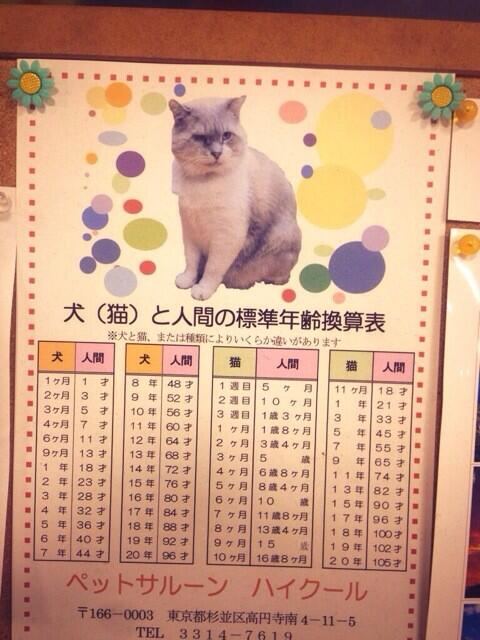 犬（猫）と人間の標準年齢換算表
※犬と猫、または種類によりいくらか違いがあります
犬 人間 犬 人間 猫 人間 猫 人間
1ヶ月 1才 8年 48才 1週目 5ヶ月 11ヶ月 18才
2ヶ月 3才 9年 52才 2週目 10ヶ月 1年 21才
3ヶ月 5才 10年 56才 3週目 1歳3ヶ月 3年 33才
4ヶ月 7才 11年 60才 1ヶ月 1歳8ヶ月 5年 45才
6ヶ月 11才 12年 64才 2ヶ月 3歳4ヶ月 7年 55才
9ヶ月 13才 13年 68才 3ヶ月 5歳 9年 65才
1年 18才 14年 72才 4ヶ月 6歳8ヶ月 11年 74才
2年 23才 15年 76才 5ヶ月 8歳4ヶ月 13年 82才
3年 28才 16年 80才 6ヶ月 10歳 15年 90才
4年 32才 17年 84才 7ヶ月 11歳8ヶ月 17年 96才
5年 36才 18年 88才 8ヶ月 13歳4ヶ月 18年 100才
6年 40才 19年 92才 9ヶ月 15歳 19年 102才
7年 44才 20年 96才 10ヶ月 16歳8ヶ月 20年 105才
ペットサルーン ハイクール
〒166-0003 東京都杉並区高円寺南4-11-5
TEL 3314-7619